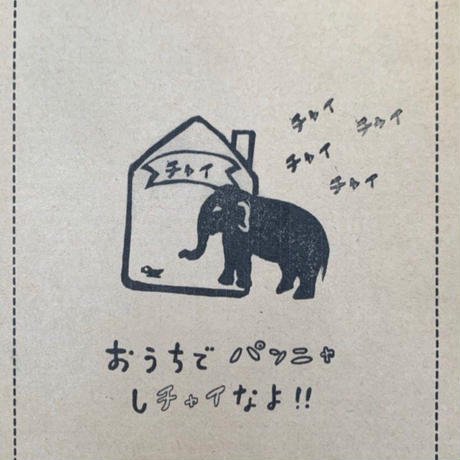 チャイ
チャイ
チャイ
チャイ
チャイ
おうちで パンニャ
しチャイなよ!!